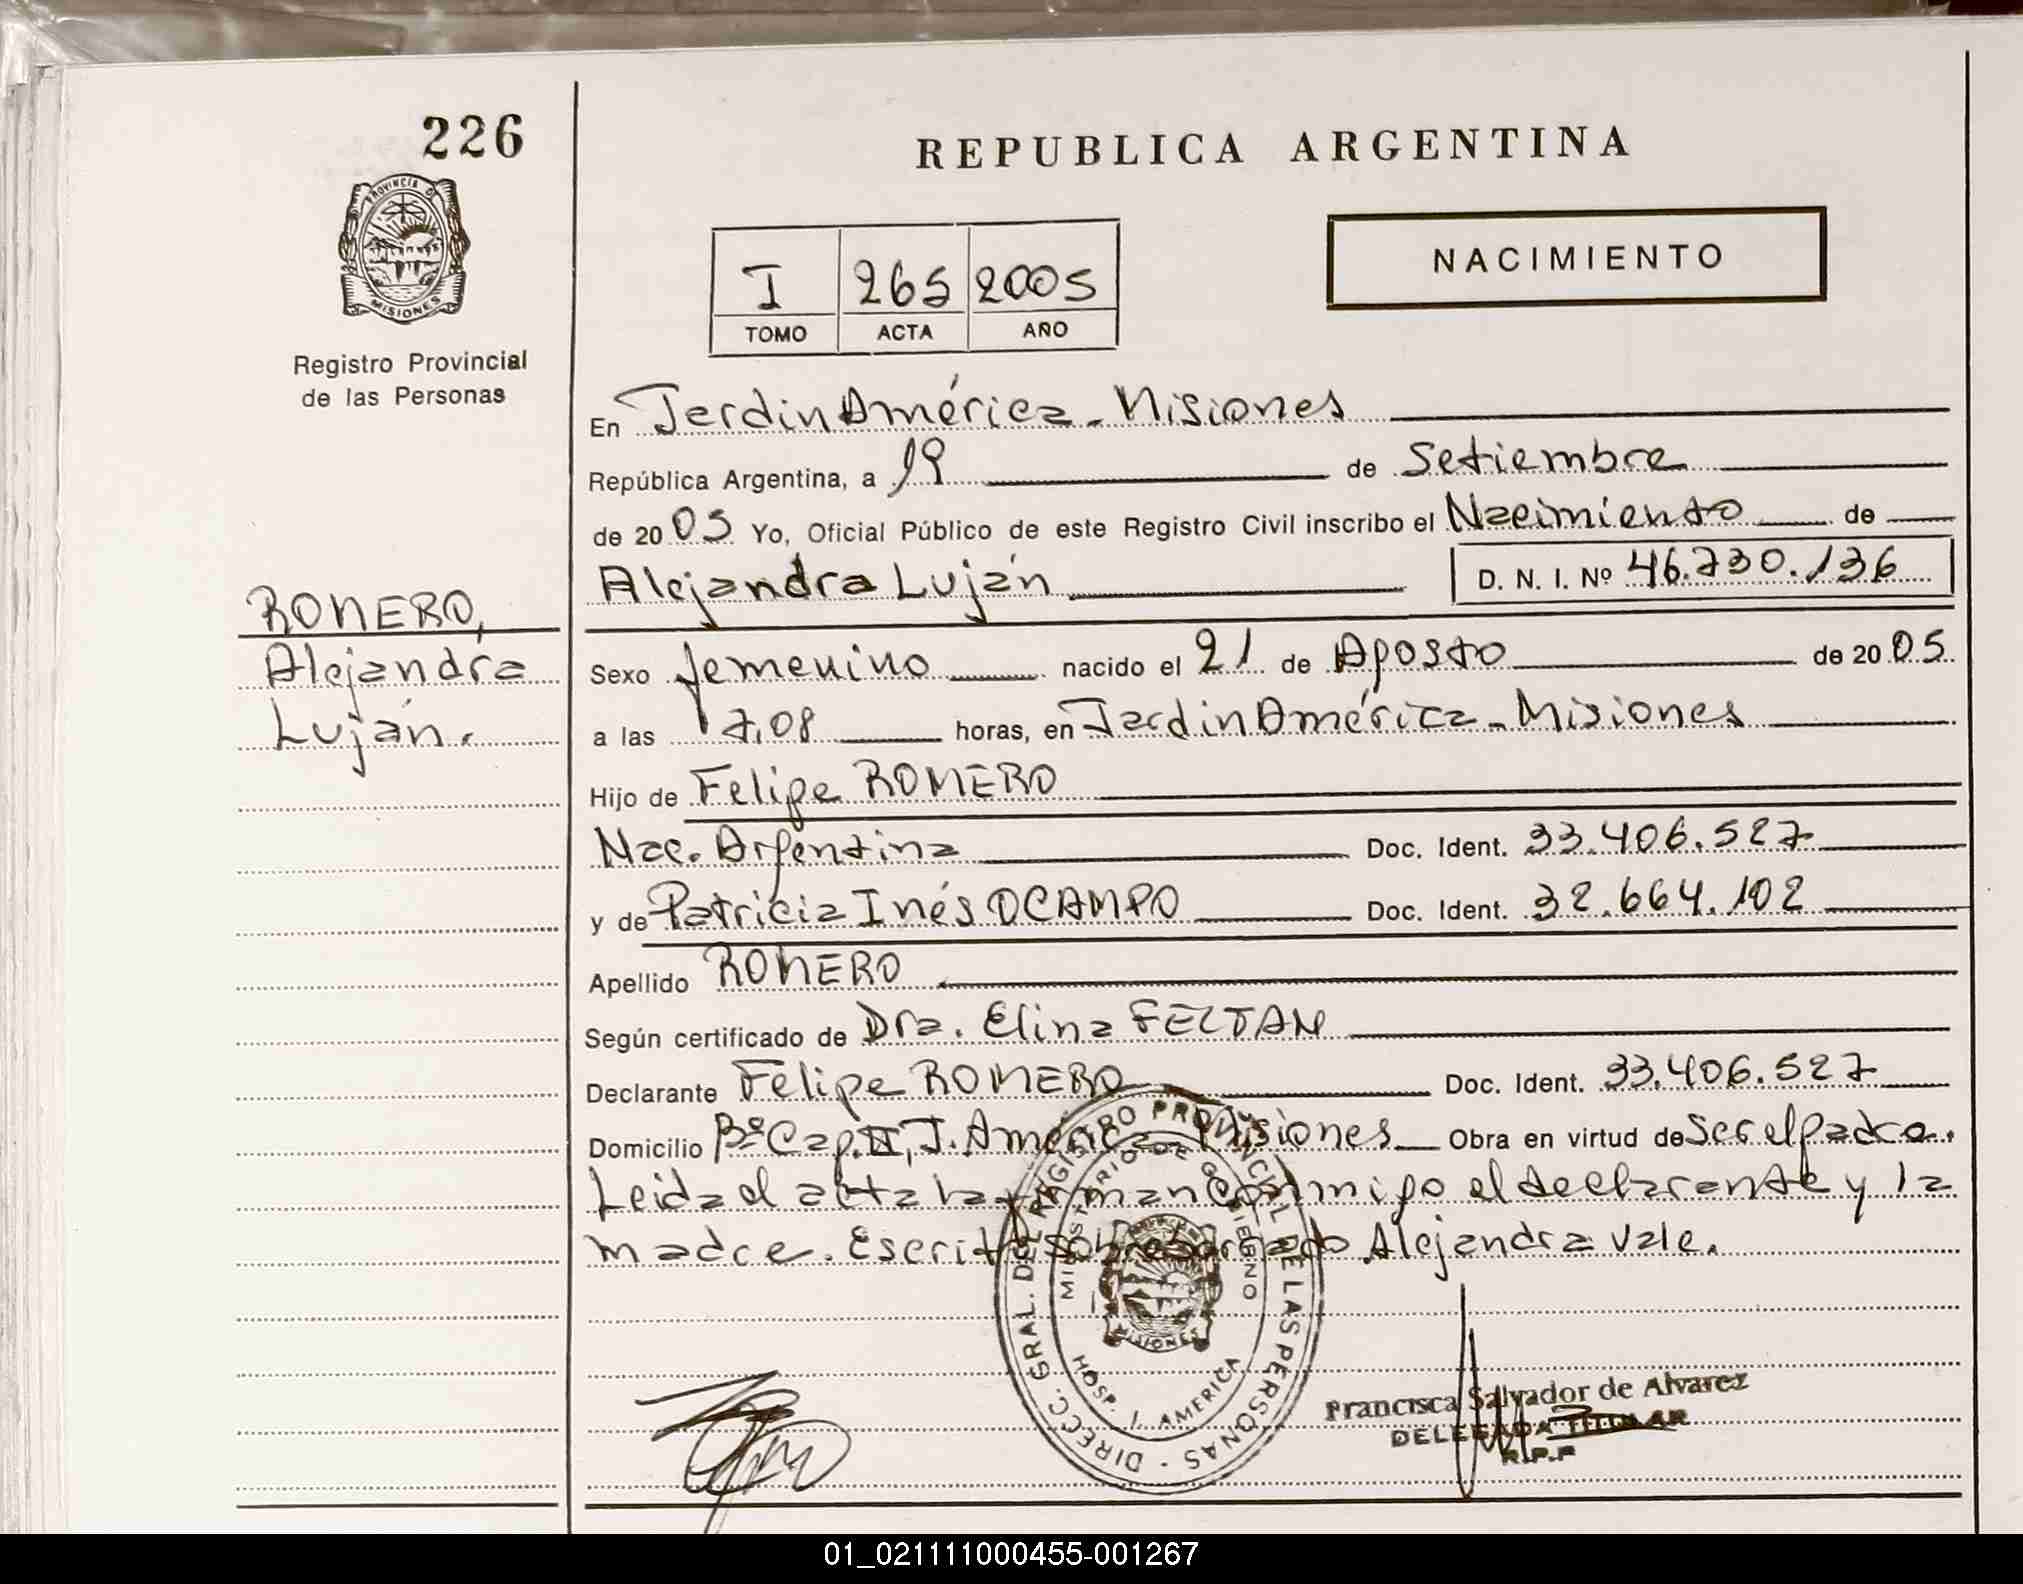 226
PROVINCIA DE
MISIONES
Registro Provincial
de las Personas
ROMERO,
Alejandra
Luján.
REPUBLICA ARGENTINA
NACIMIENTO
I 265 2005
TOMO ACTA AÑO
En Jardin América - Misiones
República Argentina, a 19 de Setiembre
de 2005 Yo, Oficial Público de este Registro Civil inscribo el Nacimiento de
Alejandra Luján D. N. I. Nº 46.730.136
Sexo femenino nacido el 21 de Agosto de 2005
a las 17,08 horas, en Jardin América - Misiones
Hijo de Felipe ROMERO
Nac. Argentina Doc. Ident. 33.406.527
y de Patricia Inés OCAMPO Doc. Ident. 32.664.102
Apellido ROMERO
Según certificado de Dra. Elina FELTAN
Declarante Felipe ROMERO Doc. Ident. 33.406.527
Domicilio Bº Cap. II, J. América - Misiones Obra en virtud de Ser el padre.
Leida el acta la firman conmigo el declarante y la
madre. Escrito sobreborrado Alejandra vale.
DIRECC. GRAL. DEL REGISTRO PROVINCIAL DE LAS PERSONAS
MINISTERIO DE GOBIERNO
MISIONES
HOSP. J. AMERICA
Francisca Salvador de Alvarez
DELEGADA TITULAR
R.P.P
01_021111000455-001267